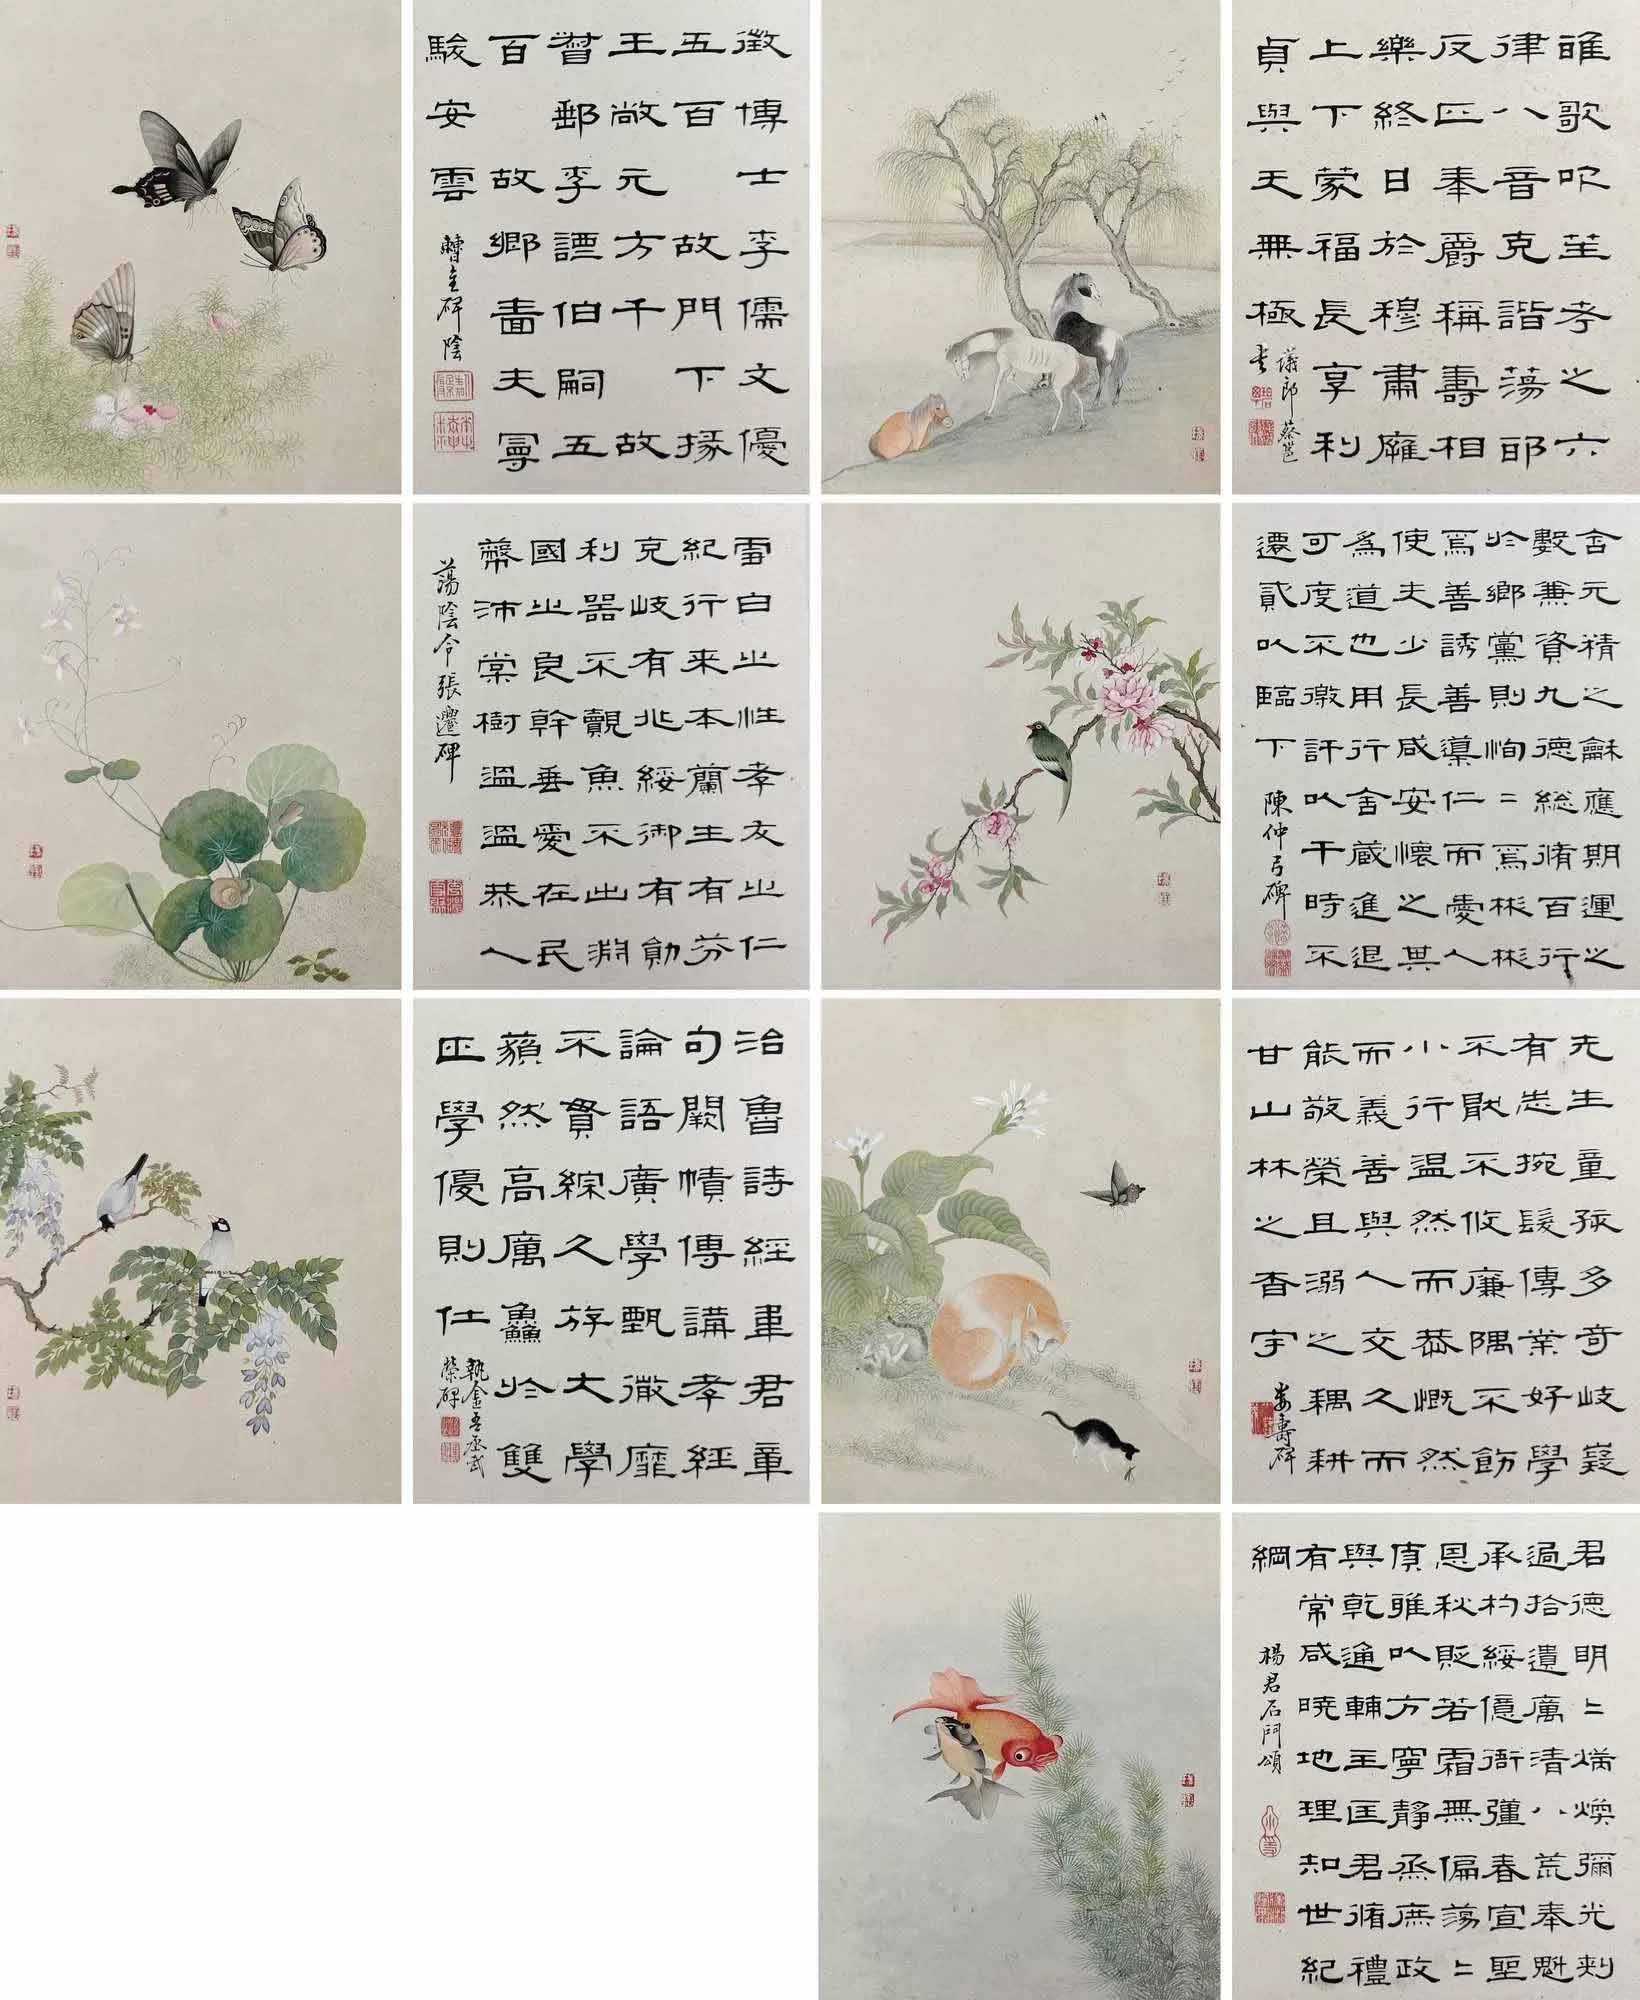 徵博士李儒文優
五百 故門下掾
王敞元方千 故
督郵李諲伯嗣五
百 故鄉嗇夫曼
駿安雲
曹全碑陰
雅歌吹笙考之六
律八音克諧蕩耶
反正奉爵稱壽相
樂終日於穆肅雍
上下蒙福長享利
貞與天無極
議郎蔡邕
書
雪白之性孝友之仁
紀行来本蘭生有芬
克岐有兆綏御有勛
利器不覿魚不出淵
國之良幹垂愛在民
蔽沛棠樹溫溫恭人
蕩陰令張遷碑
含元精之龢應期運之
數兼資九德總脩百行
於鄉黨則恂〻焉彬彬
焉善誘善導仁而愛人
使夫少長咸安懷之其
為道也用行舍藏進退
可度不徼訐以干時不
遷貳以臨下
陳仲弓碑
治魯詩經韋君章
句闕幘傳講孝經
論語廣學甄微靡
不貫綜久斿大學
藐然高厲鱻於雙
匹學優則仕
執金吾丞武
榮碑
先生童孩多奇岐嶷
有志捥髮傳業好學
不猒不攸廉隅不飭
小行溫然而恭慨然
而義善與人交久而
能敬榮且溺之耦耕
甘山林之杳宇
婁壽碑
君德明〻炳煥彌光刺
過拾遺厲清八荒奉魁
承杓綏億衙彊春宣聖
恩秋貶若霜無偏蕩〻
貞雅以方寧靜烝庶政
與乾通輔主匡君脩禮
有常咸曉地理知世紀
綱
楊君石門頌